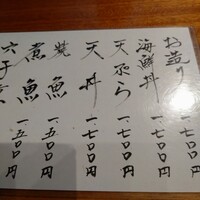 お造り 一、七〇〇円
海鮮丼 一、七〇〇円
天ぷら 一、七〇〇円
天丼 一、七〇〇円
焼魚 一、五〇〇円
煮魚 一、五〇〇円
一、五〇〇円